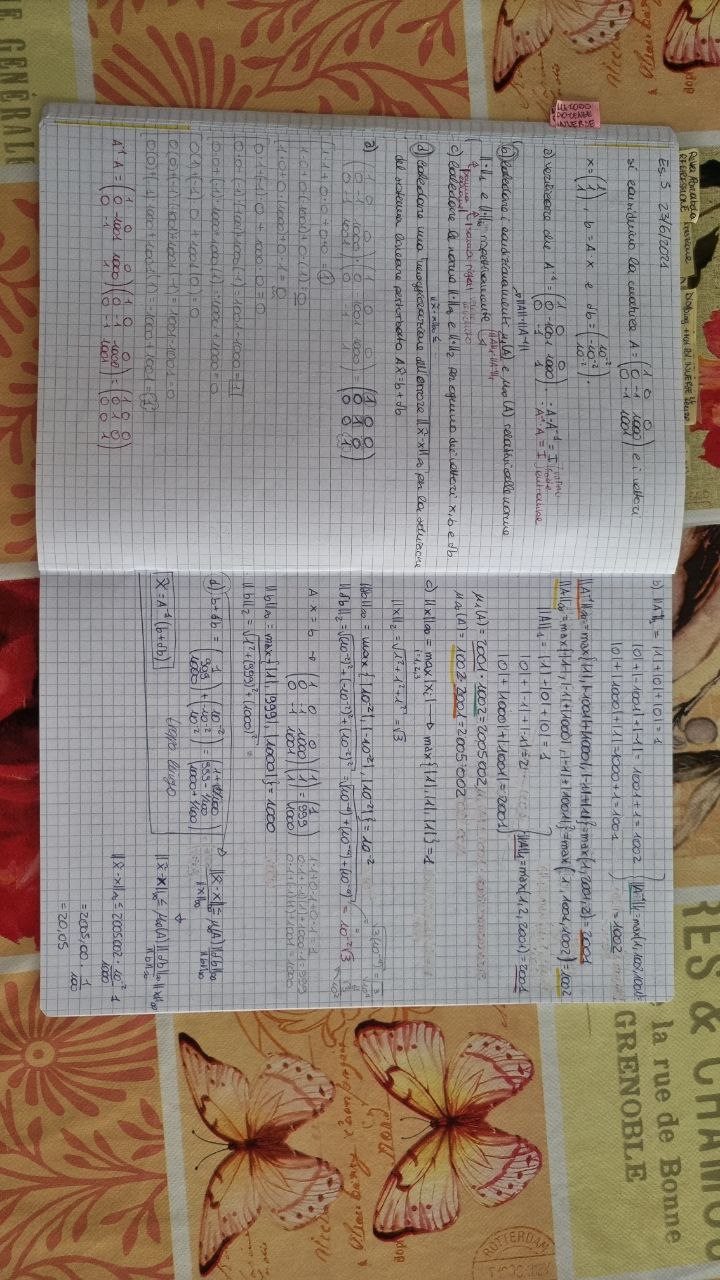 Es. 5 23/6/2021
si consideri la matrice A = (1 0 0; 0 -1 1000; 0 -1 1001) e i vettori
x = (1; 1; 1), b = A·x e δb = (10⁻²; -10⁻²; 10⁻²)
a) verificare che A⁻¹ = (1 0 0; 0 -1001 1000; 0 -1 1) · A·A⁻¹ = I
· A⁻¹·A = I
||A||·||A⁻¹||
b) calcolare i condizionamenti μ₁(A) e μ∞(A) relativi alle norme
||·||₁ e ||·||∞ rispettivamente
c) calcolare la norma ||·||∞ e ||·||₂ per ognuno dei vettori x, b e δb
d) calcolare una maggiorazione dell'errore ||x̃-x||∞ per la soluzione
del sistema lineare perturbato Ax̃=b+δb
a) (1 0 0; 0 -1 1000; 0 -1 1001) · (1 0 0; 0 -1001 1000; 0 -1 1) = (1 0 0; 0 1 0; 0 0 1)
1·1+0·0+0·0 = 1
1·0+0·(-1001)+0·(-1) = 0
1·0+0·(1000)+0·1 = 0
0·1+(-1)·0+1000·0 = 0
0·0+(-1)·(-1001)+1000(-1) = 1001-1000 = 1
0·0+(-1)·1000+1000·1 = -1000+1000 = 0
0(1)+(-1)·0+1001(0) = 0
0(0)+(-1)·(-1001)+1001(-1) = 1001-1001 = 0
0(0)+(-1)·1000+1001(1) = -1000+1001 = 1
A⁻¹·A = (1 0 0; 0 -1001 1000; 0 -1 1)(1 0 0; 0 -1 1000; 0 -1 1001) = (1 0 0; 0 1 0; 0 0 1)
b) ||A⁻¹||₁ = |1|+|0|+|0| = 1
|0|+|-1001|+|-1| = 1001+1 = 1002
|0|+|1000|+|1| = 1000+1 = 1001
||A⁻¹||₁ = max(1,1002,1001) =
= 1002
||A⁻¹||∞ = max{|1|, |-1001|+|1000|, |-1|+|1|} = max(1, 2001, 2) = 2001
||A||∞ = max{|1|, |-1|+|1000|, |-1|+|1001|} = max(1, 1001, 1002) = 1002
||A||₁ = |1|+|0|+|0| = 1
|0|+|-1|+|-1| = 2
|0|+|1000|+|1001| = 2001
||A||₁ = max(1, 2, 2001) = 2001
μ₁(A) = 2001 · 1002 = 2005002
μ∞(A) = 1002 · 2001 = 2005002
c) ||x||∞ = max |xᵢ| → max{|1|, |1|, |1|} = 1
i=1,2,3
||x||₂ = √1²+1²+1² = √3
||δb||∞ = max{|10⁻²|, |-10⁻²|, |10⁻²|} = 10⁻²
||δb||₂ = √(10⁻²)²+(-10⁻²)²+(10⁻²)² = √(10⁻⁴)+(10⁻⁴)+(10⁻⁴) = 10⁻²√3
√3(10⁻⁴)
A·x = b → (1 0 0; 0 -1 1000; 0 -1 1001)(1; 1; 1) = (1; 999; 1000)
1·1+0·1+0·1 = 1
0·1+(-1)(1)+1000·1 = 999
0·1+(-1)(1)+1001 = 1000
||b||∞ = max{|1|, |999|, |1000|} = 1000
||b||₂ = √1²+(999)²+(1000)² =
d) b+δb = (1; 999; 1000) + (10⁻²; -10⁻²; 10⁻²) = (1+1/100; 999-1/100; 1000+1/100)
troppo lungo
x̃ = A⁻¹(b+δb)
||x̃-x||∞/||x||∞ ≤ μ∞(A) ||δb||∞/||b||∞
↓
||x̃-x||∞ ≤ μ∞(A) ||δb||∞/||b||∞ ||x||∞
||x̃-x||∞ ≤ 2005002 · 10⁻²/1000 · 1
= 2005,00 · 1/100
= 20,05
RES & CHAMOU
la rue de Bonne
GRENOBLE
NE GÉNÉRALE